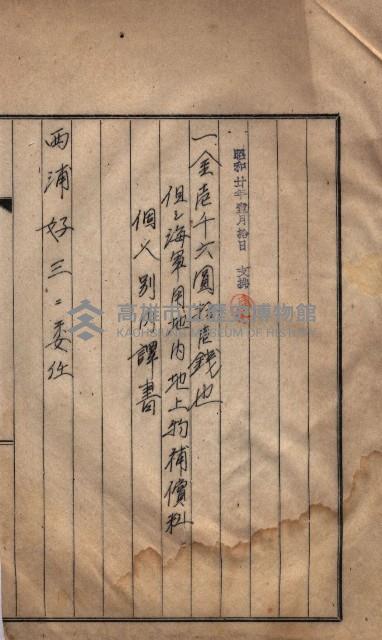 昭和廿年壹月拾日 支拂
一金壱千六圓 壱錢也
但シ海軍用地内地上物補償料
個人別内譯書
西浦好三ニ委任
高雄市立歷史博物館
KAOHSIUNG MUSEUM OF HISTORY